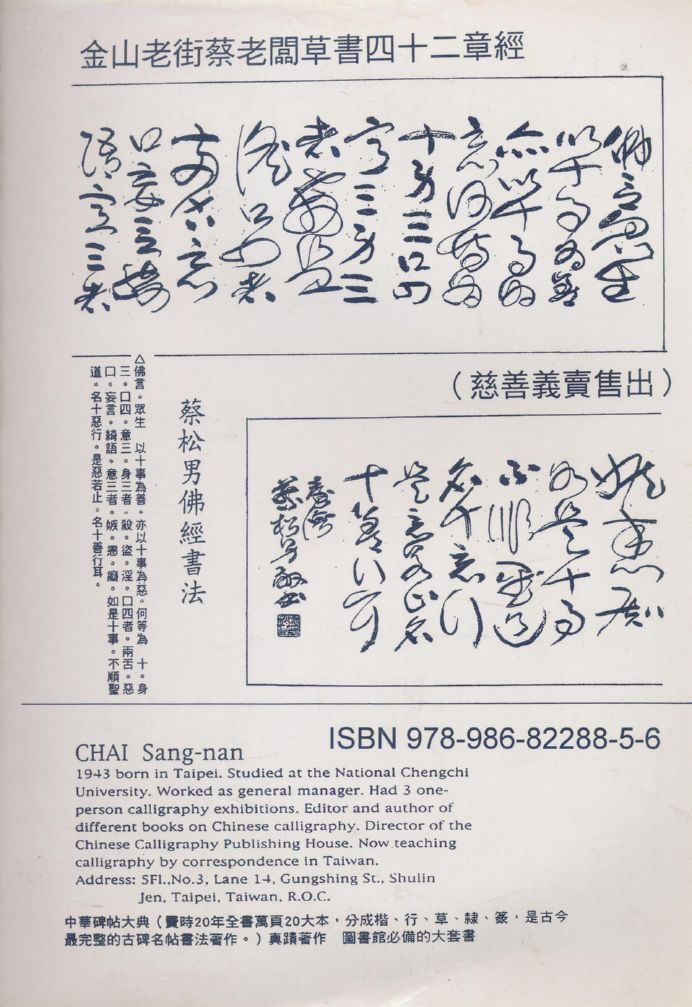 金山老街蔡老闆草書四十二章經
佛言眾生
以十事為善
亦以十事為
惡何等為
十身三口四
意三身三
者殺盜
淫口四者
兩舌惡
口妄言綺
語意三者
（慈善義賣售出）
嫉恚癡
如是十事
不順聖道
名十惡行
是惡若止名
十善行耳
蔡松男敬書
蔡松男佛經書法
△佛言。眾生 以十事為善。亦以十事為惡。何等為 十。身
三。口四。意三。身三者。殺。盜。淫。口四者。兩舌。惡
口。妄言。綺語。意三者。嫉。恚。癡。如是十事。不順聖
道。名十惡行。是惡若止。名十善行耳。
ISBN 978-986-82288-5-6
CHAI Sang-nan
1943 born in Taipei. Studied at the National Chengchi
University. Worked as general manager. Had 3 one-
person calligraphy exhibitions. Editor and author of
different books on Chinese calligraphy. Director of the
Chinese Calligraphy Publishing House. Now teaching
calligraphy by correspondence in Taiwan.
Address: 5Fl.,No.3, Lane 14, Gungshing St., Shulin
Jen, Taipei, Taiwan, R.O.C.
中華碑帖大典（費時20年全書萬頁20大本，分成楷、行、草、隸、篆，是古今
最完整的古碑名帖書法著作。）真蹟著作 圖書館必備的大套書